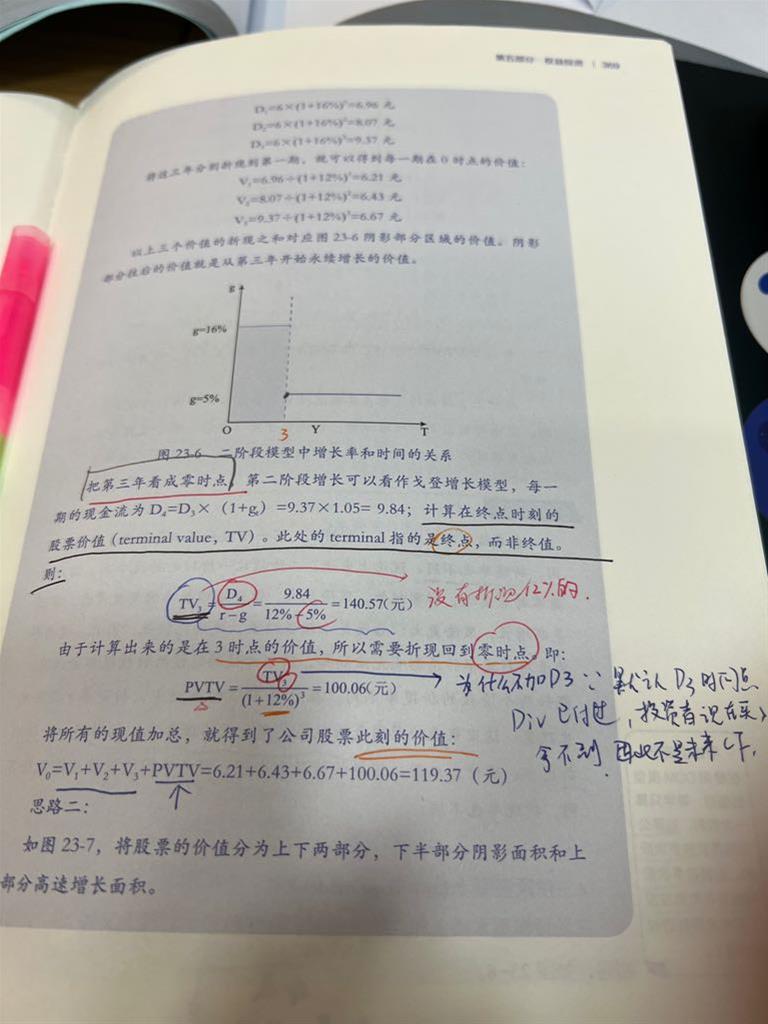 第五部分 权益投资 | 369
D₁=6×(1+16%)¹=6.96 元
D₂=6×(1+16%)²=8.07 元
D₃=6×(1+16%)³=9.37 元
将这三年分别折现到第一期，就可以得到每一期在 0 时点的价值：
V₁=6.96÷(1+12%)¹=6.21 元
V₂=8.07÷(1+12%)²=6.43 元
V₃=9.37÷(1+12%)³=6.67 元
以上三个价值的折现之和对应图 23-6 阴影部分区域的价值。阴影
部分往后的价值就是从第三年开始永续增长的价值。
g
g=16%
g=5%
O 3 Y T
图 23-6 二阶段模型中增长率和时间的关系
把第三年看成零时点，第二阶段增长可以看作戈登增长模型，每一
期的现金流为 D₄=D₃×（1+gₜ）=9.37×1.05= 9.84；计算在终点时刻的
股票价值（terminal value，TV）。此处的 terminal 指的是终点，而非终值。
则：
TV₃=D₄/(r−g)=9.84/(12%−5%)=140.57(元) 没有折现12%的.
由于计算出来的是在 3 时点的价值，所以需要折现回到零时点。即：
PVTV=TV₃/(1+12%)³=100.06(元) 为什么不加D3 ∵ 默认 D3 时间点
Div 已付过，投资者现在买
拿不到 因此不是未来CF.
将所有的现值加总，就得到了公司股票此刻的价值：
V₀=V₁+V₂+V₃+PVTV=6.21+6.43+6.67+100.06=119.37（元）
思路二：
如图 23-7，将股票的价值分为上下两部分，下半部分阴影面积和上
部分高速增长面积。